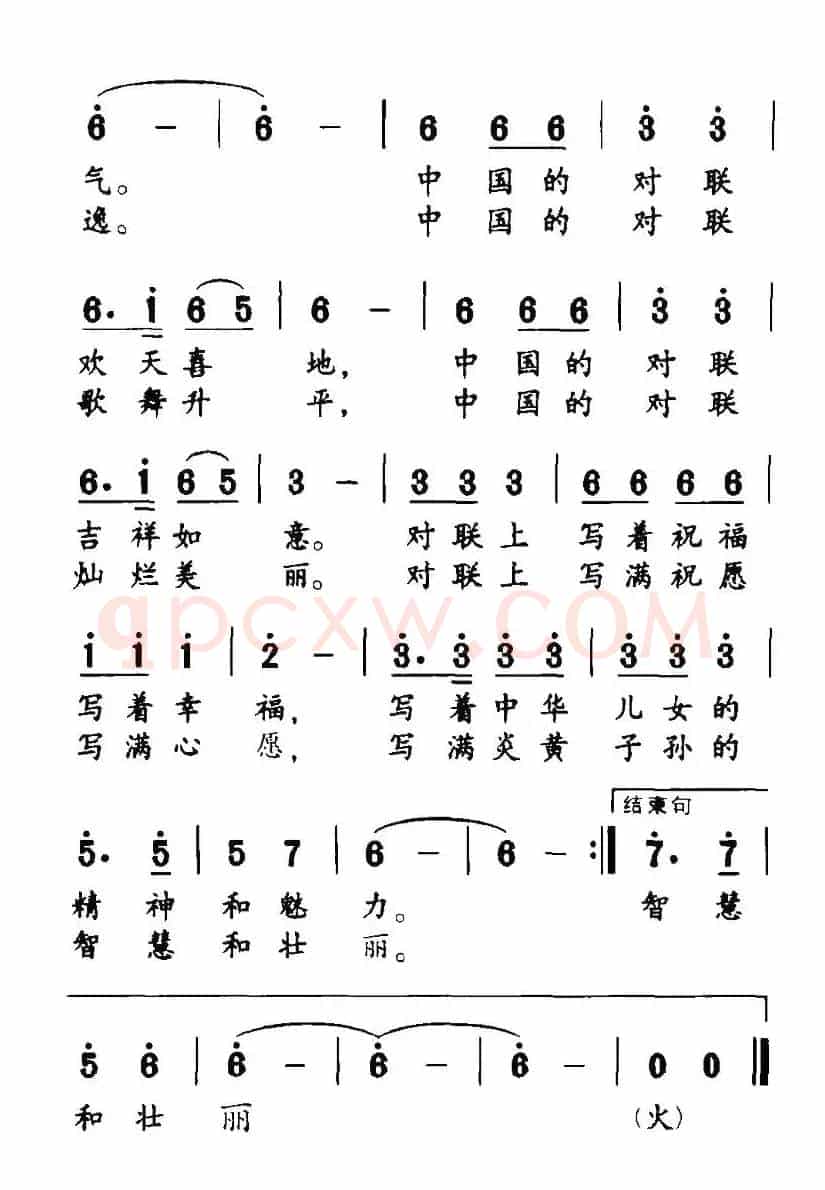 6̇ – | 6̇ – | 6 6 6 | 3̇ 3̇ |
气。 中 国 的 对 联
逸。 中 国 的 对 联
6. 1̇ 6 5 | 6 – | 6 6 6 | 3̇ 3̇ |
欢 天 喜 地， 中 国 的 对 联
歌 舞 升 平， 中 国 的 对 联
6. 1̇ 6 5 | 3 – | 3 3 3 3 | 6 6 6 6 |
吉 祥 如 意。 对 联 上 写 着 祝 福
灿 烂 美 丽。 对 联 上 写 满 祝 愿
qpcxw.COM
1̇ 1̇ 1̇ | 2̇ – | 3̇. 3̇ 3̇ 3̇ | 3̇ 3̇ 3̇ |
写 着 幸 福， 写 着 中 华 儿 女 的
写 满 心 愿， 写 满 炎 黄 子 孙 的
结束句
5̇. 5̇ | 5 7 | 6 – | 6 – :| 7̇. 7̇ |
精 神 和 魅 力。 智 慧
智 慧 和 壮 丽。
5̇ 6̇ | 6̇ – | 6̇ – | 6̇ – | 0 0 ‖
和 壮 丽 （火）